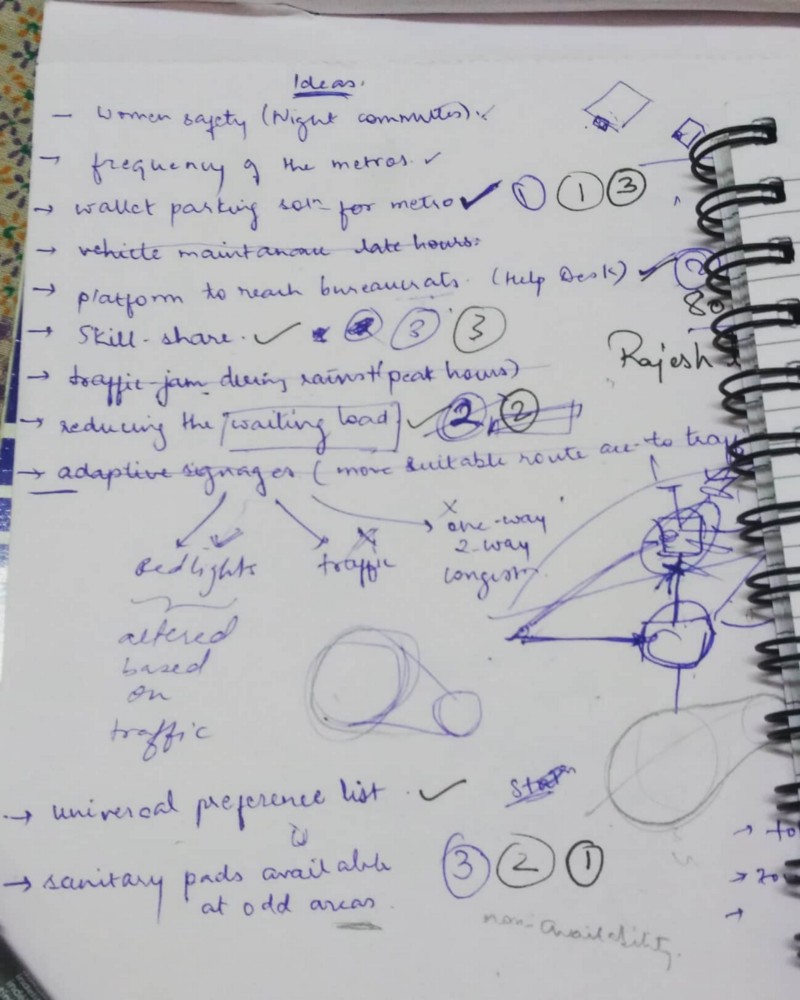 Ideas.
- Women safety (Night commutes). ✓
→ frequency of the metros. ✓
→ wallet parking sol^n for metro ✓ 1 1 3
→ vehicle maintanance late hours.
→ platform to reach bureaucrats. (Help Desk) ✓ 2
80
→ Skill-share. ✓ 3 3
Rajesh
→ traffic-jam during rains (peak hours)
→ reducing the [waiting load] ✓ 2 2
→ adaptive signages (more suitable route acc to
Redlights ✓
traffic X
X one-way
2-way
congest
altered
based
on
traffic
→ universal preference list. ✓
→ sanitary pads available
at odd areas.
3 2 1
non-availability